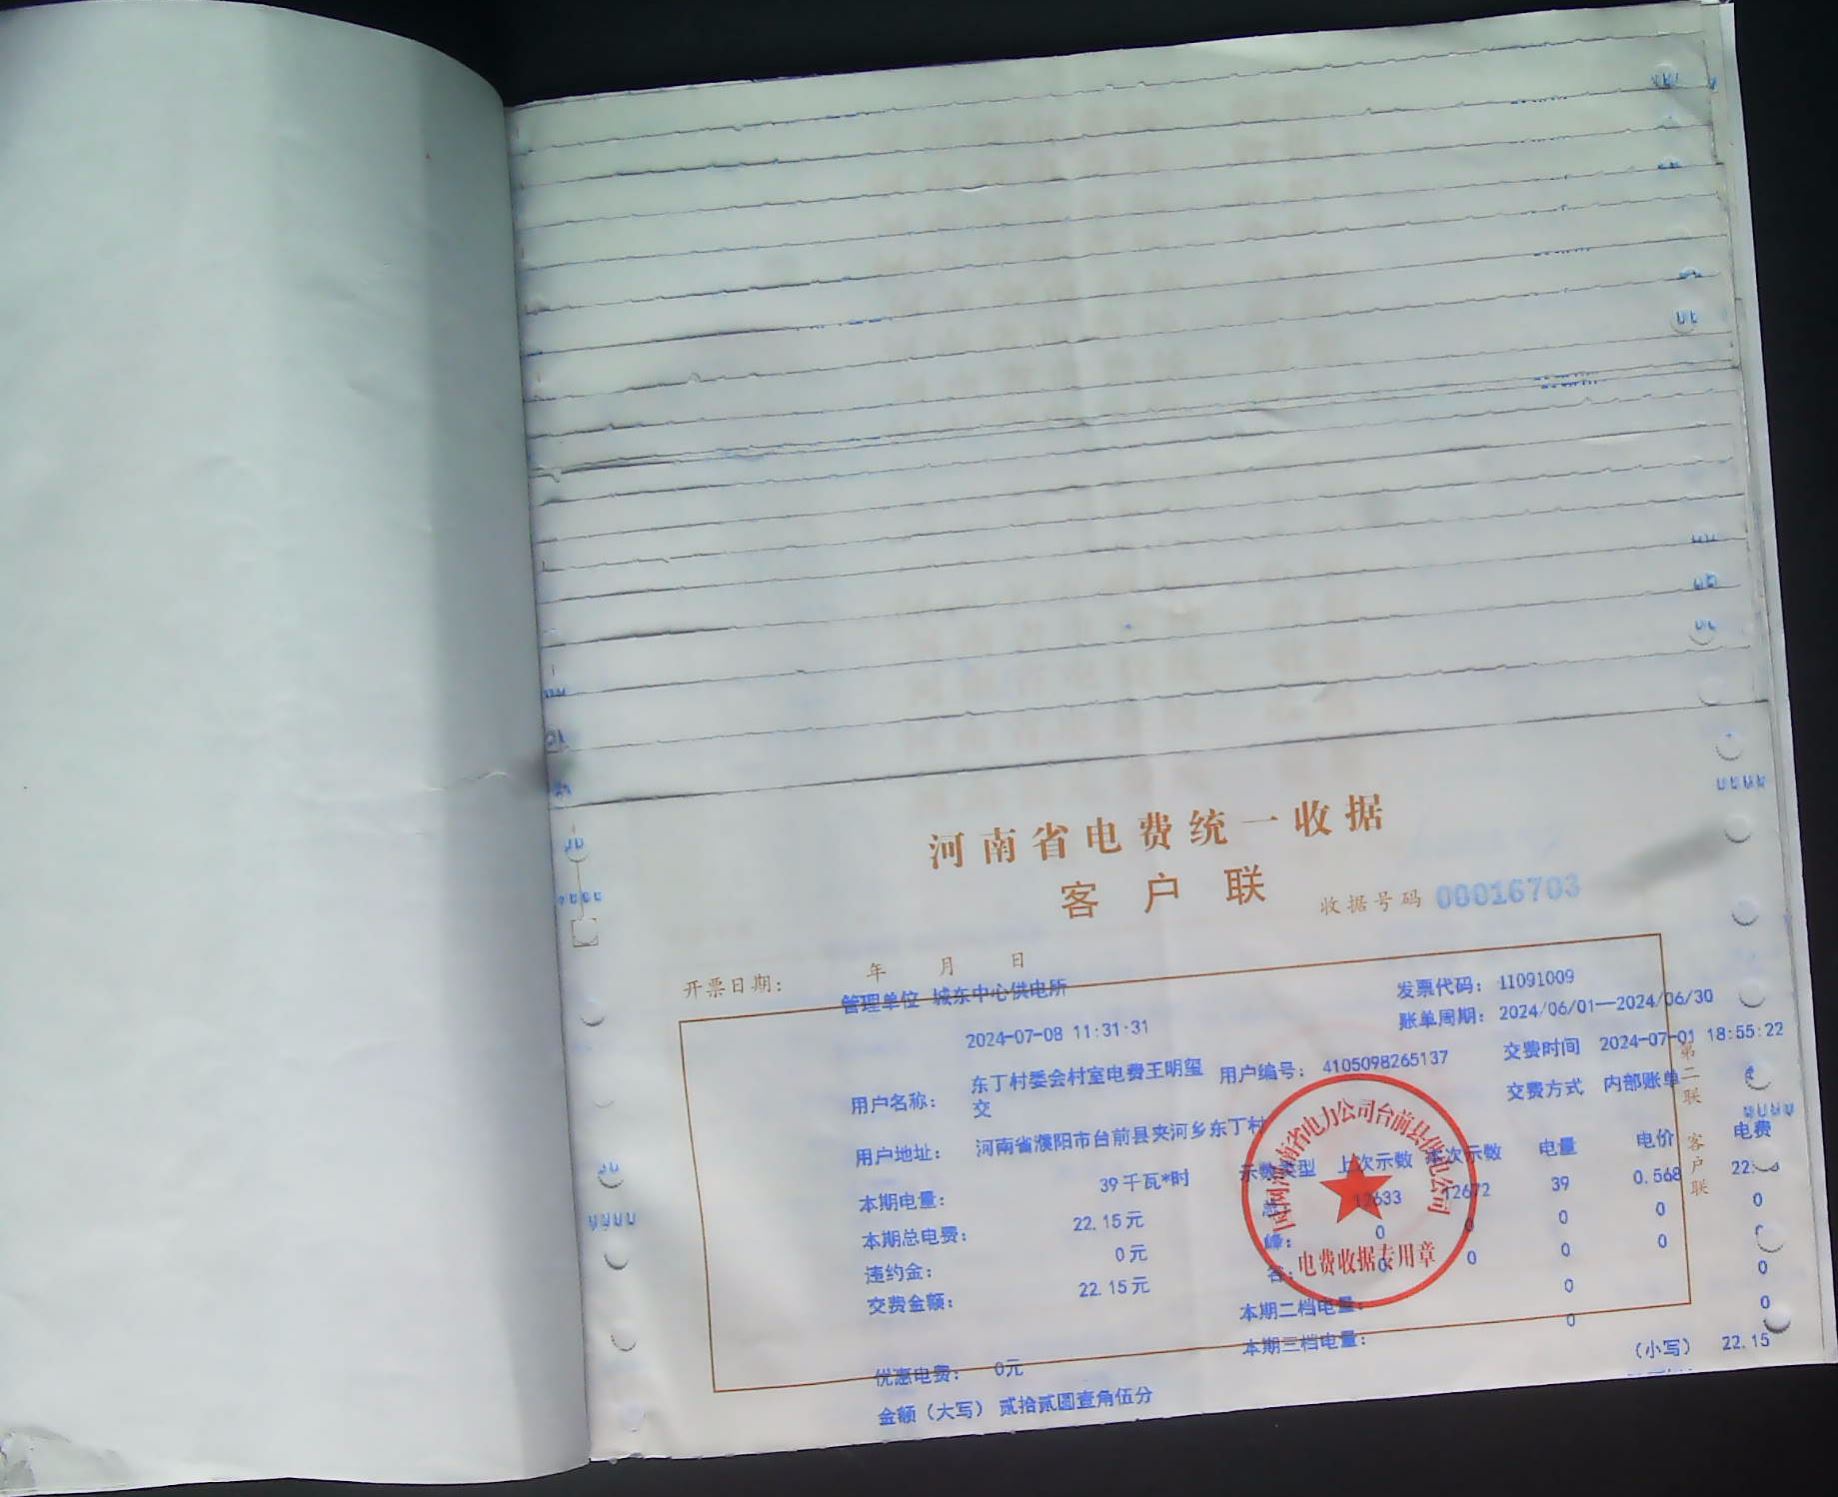 河南省电费统一收据
客户联 收据号码 00016703
开票日期: 年 月 日
管理单位 城东中心供电所 发票代码: 11091009
2024-07-08 11:31:31 账单周期: 2024/06/01—2024/06/30
用户名称: 东丁村委会村室电费王明玺交 用户编号: 4105098265137 交费时间 2024-07-01 18:55:22
交费方式 内部账单
用户地址: 河南省濮阳市台前县夹河乡东丁村
示数类型 上次示数 本次示数 电量 电价 电费
本期电量: 39千瓦*时 12633 12672 39 0.568 22.
本期总电费: 22.15元 峰: 0 0 0 0 0
违约金: 0元 谷: 0 0 0 0
交费金额: 22.15元 本期二档电量: 0 0
本期三档电量: 0 0
优惠电费: 0元
金额(大写) 贰拾贰圆壹角伍分 (小写) 22.15
第二联 客户联
国网河南省电力公司台前县供电公司
电费收据专用章